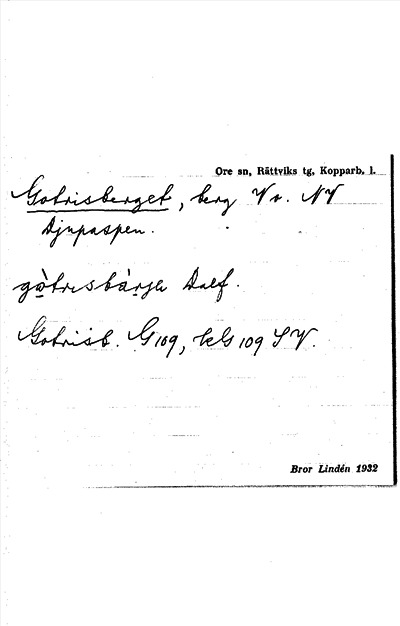 Ore sn, Rättviks tg, Kopparb. l.
Gotrisberget, berg V v. NV
Djupaspen.
Dalf.
Gotrisb. G 109, kls 109 SV.
Bror Lindén 1932